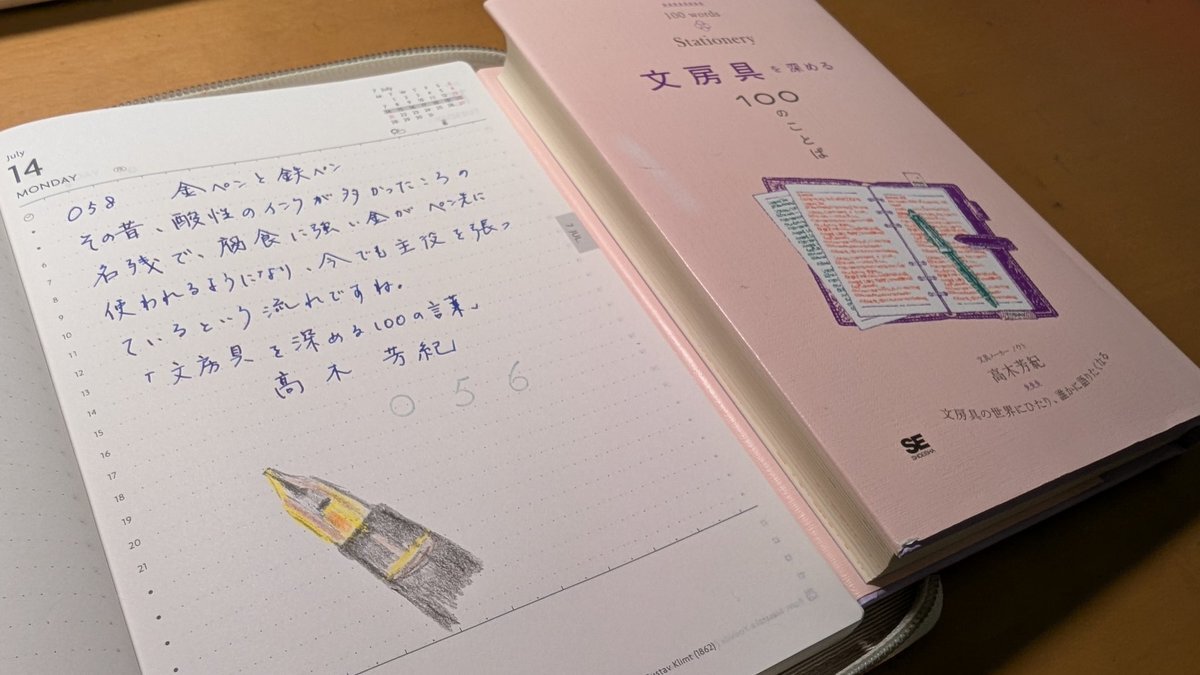 July
14
MONDAY
058 金ペンと鉄ペン
その昔、酸性のインクが多かったころの
名残で、腐食に強い金がペン先に
使われるようになり、今でも主役を張っ
ているという流れですね。
「文房具を深める100の言葉」
高木 芳紀
056
6
7
8
9
10
11
12
13
14
15
16
17
18
19
20
21
7 July
7 JUL
Gustav Klimt (1862)
100 words
Stationery
文房具を深める
100
のことば
高木芳紀
文房具の世界にひたり、誰かに語りたくなる
SE
SHOEISHA